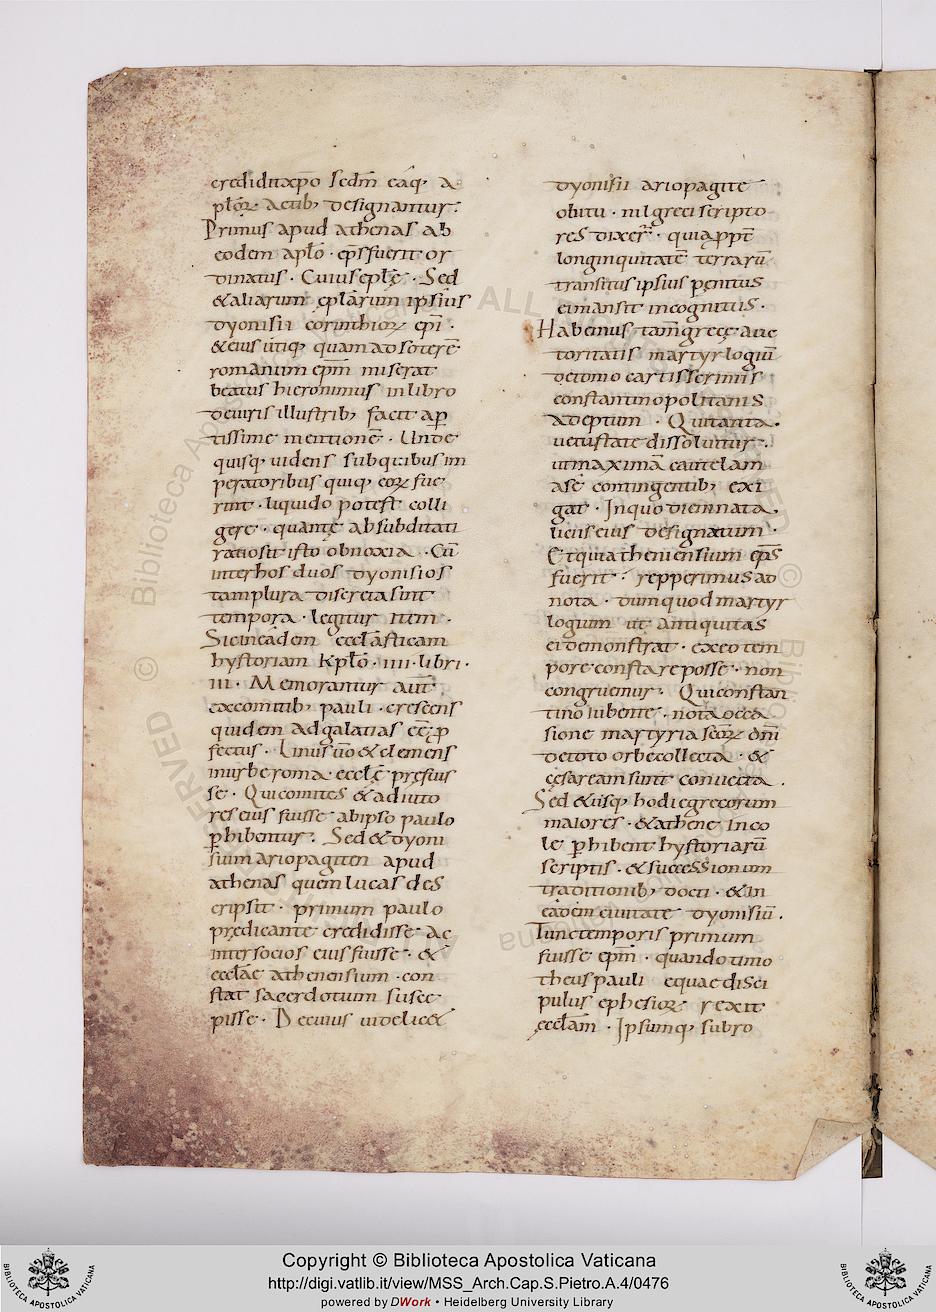 crediditxp̄o sedm̄ eāq; a
plōꝝ actib; designantur.
Primus apud athenas ab
eodem aplō · ep̄s fuerit or
dinatus · Cuius eplę · Sed
& aliarum eplārum ipsius
dyonisii corinthioꝝ epī ·
& eius utiq; quam ad soterē
romanum ep̄m miserat
beatus hieronimus in libro
deuiris illustrib; facit ap
tissime mentionē · Unde
quisq; uidens sub quibus im
peratoribus quiq; eoꝝ fue
rint · liquido potest colli
gere · quantę absurditati
ratio sit isto obnoxia · Cū
inter hos duos dyonisios
tam plura discreta sint
tempora · legitur item ·
Sic in eadem ecclāsticam
hystoriam Kplō · IIII · libri ·
III · Memorantur aut̄
ex comitib; pauli · crescens
quidem ad galatias eē p
fectus · Linus uō & clemens
in urbe roma ecclę pręfuis
se · Qui comites & adiuto
res eius fuisse ab ipso paulo
ꝑhibentur · Sed & dyoni
sium ariopagiten apud
athenas quem lucas des
cripsit · primum paulo
prędicante credidisse ac
inter socios eius fuisse · &
ecclāe athenensium · con
stat sacerdotum susce
pisse · De cuius uidelic&
dyonisii ariopagite
obitu · nil greci scripto
res dixer̄ · quia ppt̄
longinquitatē terrarū
transitus ipsius penitus
ei mansit incognitus ·
Habemus tam̄ gręcę auc
toritatis martyrlogiū
de tomo cartis ferimis
constantinopolitanis
ademptum · Qui tanta
uetustate dissoluitur ·
ut maximā cautelam
a se contingentib; exi
gat · In quo diem nata
licii eius designatum ·
Et quia theniensium ep̄s
fuerit · repperimus ad
nota · dum quod martyr
logum ut antiquitas
ei demonstrat · ex eo tem
pore constare posse · non
congruemur · Qui constan
tino iubente · nota occa
sione martyria scōꝝ dn̄i
de toto orbe collecta · &
cęsaream sunt conuecta ·
Sed & usq; hodie grecorum
maiores · & athenę inco
le ꝑhibent hystoriarū
scriptis · & successionum
traditionib; docti · & in
eadem ciuitate dyonisiū ·
Tunc temporis primum
fuisse ep̄m · quando timo
theus pauli eque disci
pulus ephesioꝝ rexit
ęcclām · Ipsumq; subro
Copyright © Biblioteca Apostolica Vaticana
http://digi.vatlib.it/view/MSS_Arch.Cap.S.Pietro.A.4/0476
powered by DWork • Heidelberg University Library
BIBLIOTECA APOSTOLICA VATICANA
BIBLIOTECA APOSTOLICA VATICANA